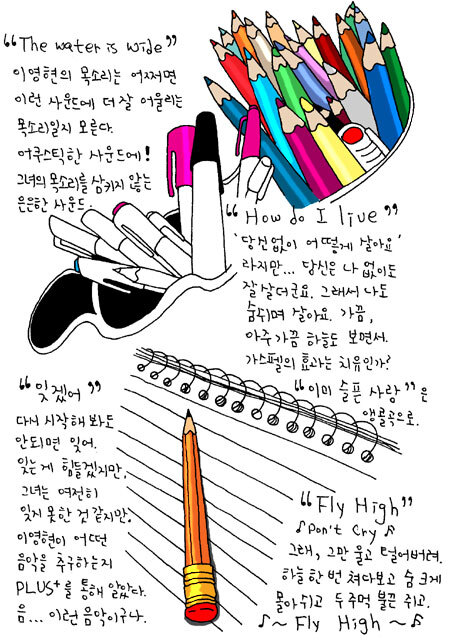 “The water is wide”
이영현의 목소리는 어쩌면
이런 사운드에 더 잘 어울리는
목소리일지 모른다.
어쿠스틱한 사운드에!
그녀의 목소리를 삼키지 않는
은은한 사운드.
“How do I live”
'당신없이 어떻게 살아요'
라지만... 당신은 나 없이도
잘 살더군요. 그래서 나도
숨쉬며 살아요. 가끔,
아주 가끔 하늘도 보면서.
가스펠의 효과는 치유인가?
“이미 슬픈 사랑”은
앵콜곡으로.
“잊겠어”
다시 시작해 봐도
안되면 잊어.
잊는 게 힘들겠지만,
그녀는 여전히
잊지 못한 것 같지만.
이영현이 어떤
음악을 추구하는지
PLUS+를 통해 알았다.
음... 이런 음악이구나.
“Fly High”
♪Don't Cry♪
그래, 그만 울고 털어버려.
하늘 한 번 쳐다보고 숨 크게
몰아쉬고 두 주먹 불끈 쥐고.
♪~ Fly High ~♪